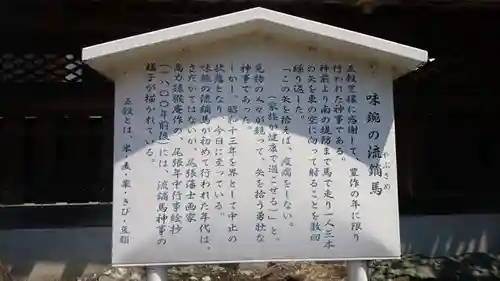 味鋺の流鏑馬
やぶさめ
五穀豊穣に感謝して、豊作の年に限り
行われた神事である。
神前より南の堤防まで馬で走り一人三本
の矢を東の空に向って射ることを数回
繰り返した。
「この矢を拾えば、疫病をしない。
（家族が健康で過ごせる）」と、
見物の人々が競って、矢を拾う勇壮な
神事であった。
しかし、昭和十三年を界として中止の
状態となり、今日に至っている。
味鋺の流鏑馬が初めて行われた年代は、
さだかではないが、尾張藩士画家
高力猿猴庵作の、尾張年中行事絵抄
（一八〇〇年前後）には、流鏑馬神事の
様子が描かれている。
五穀とは、米・麦・粟・きび・豆類